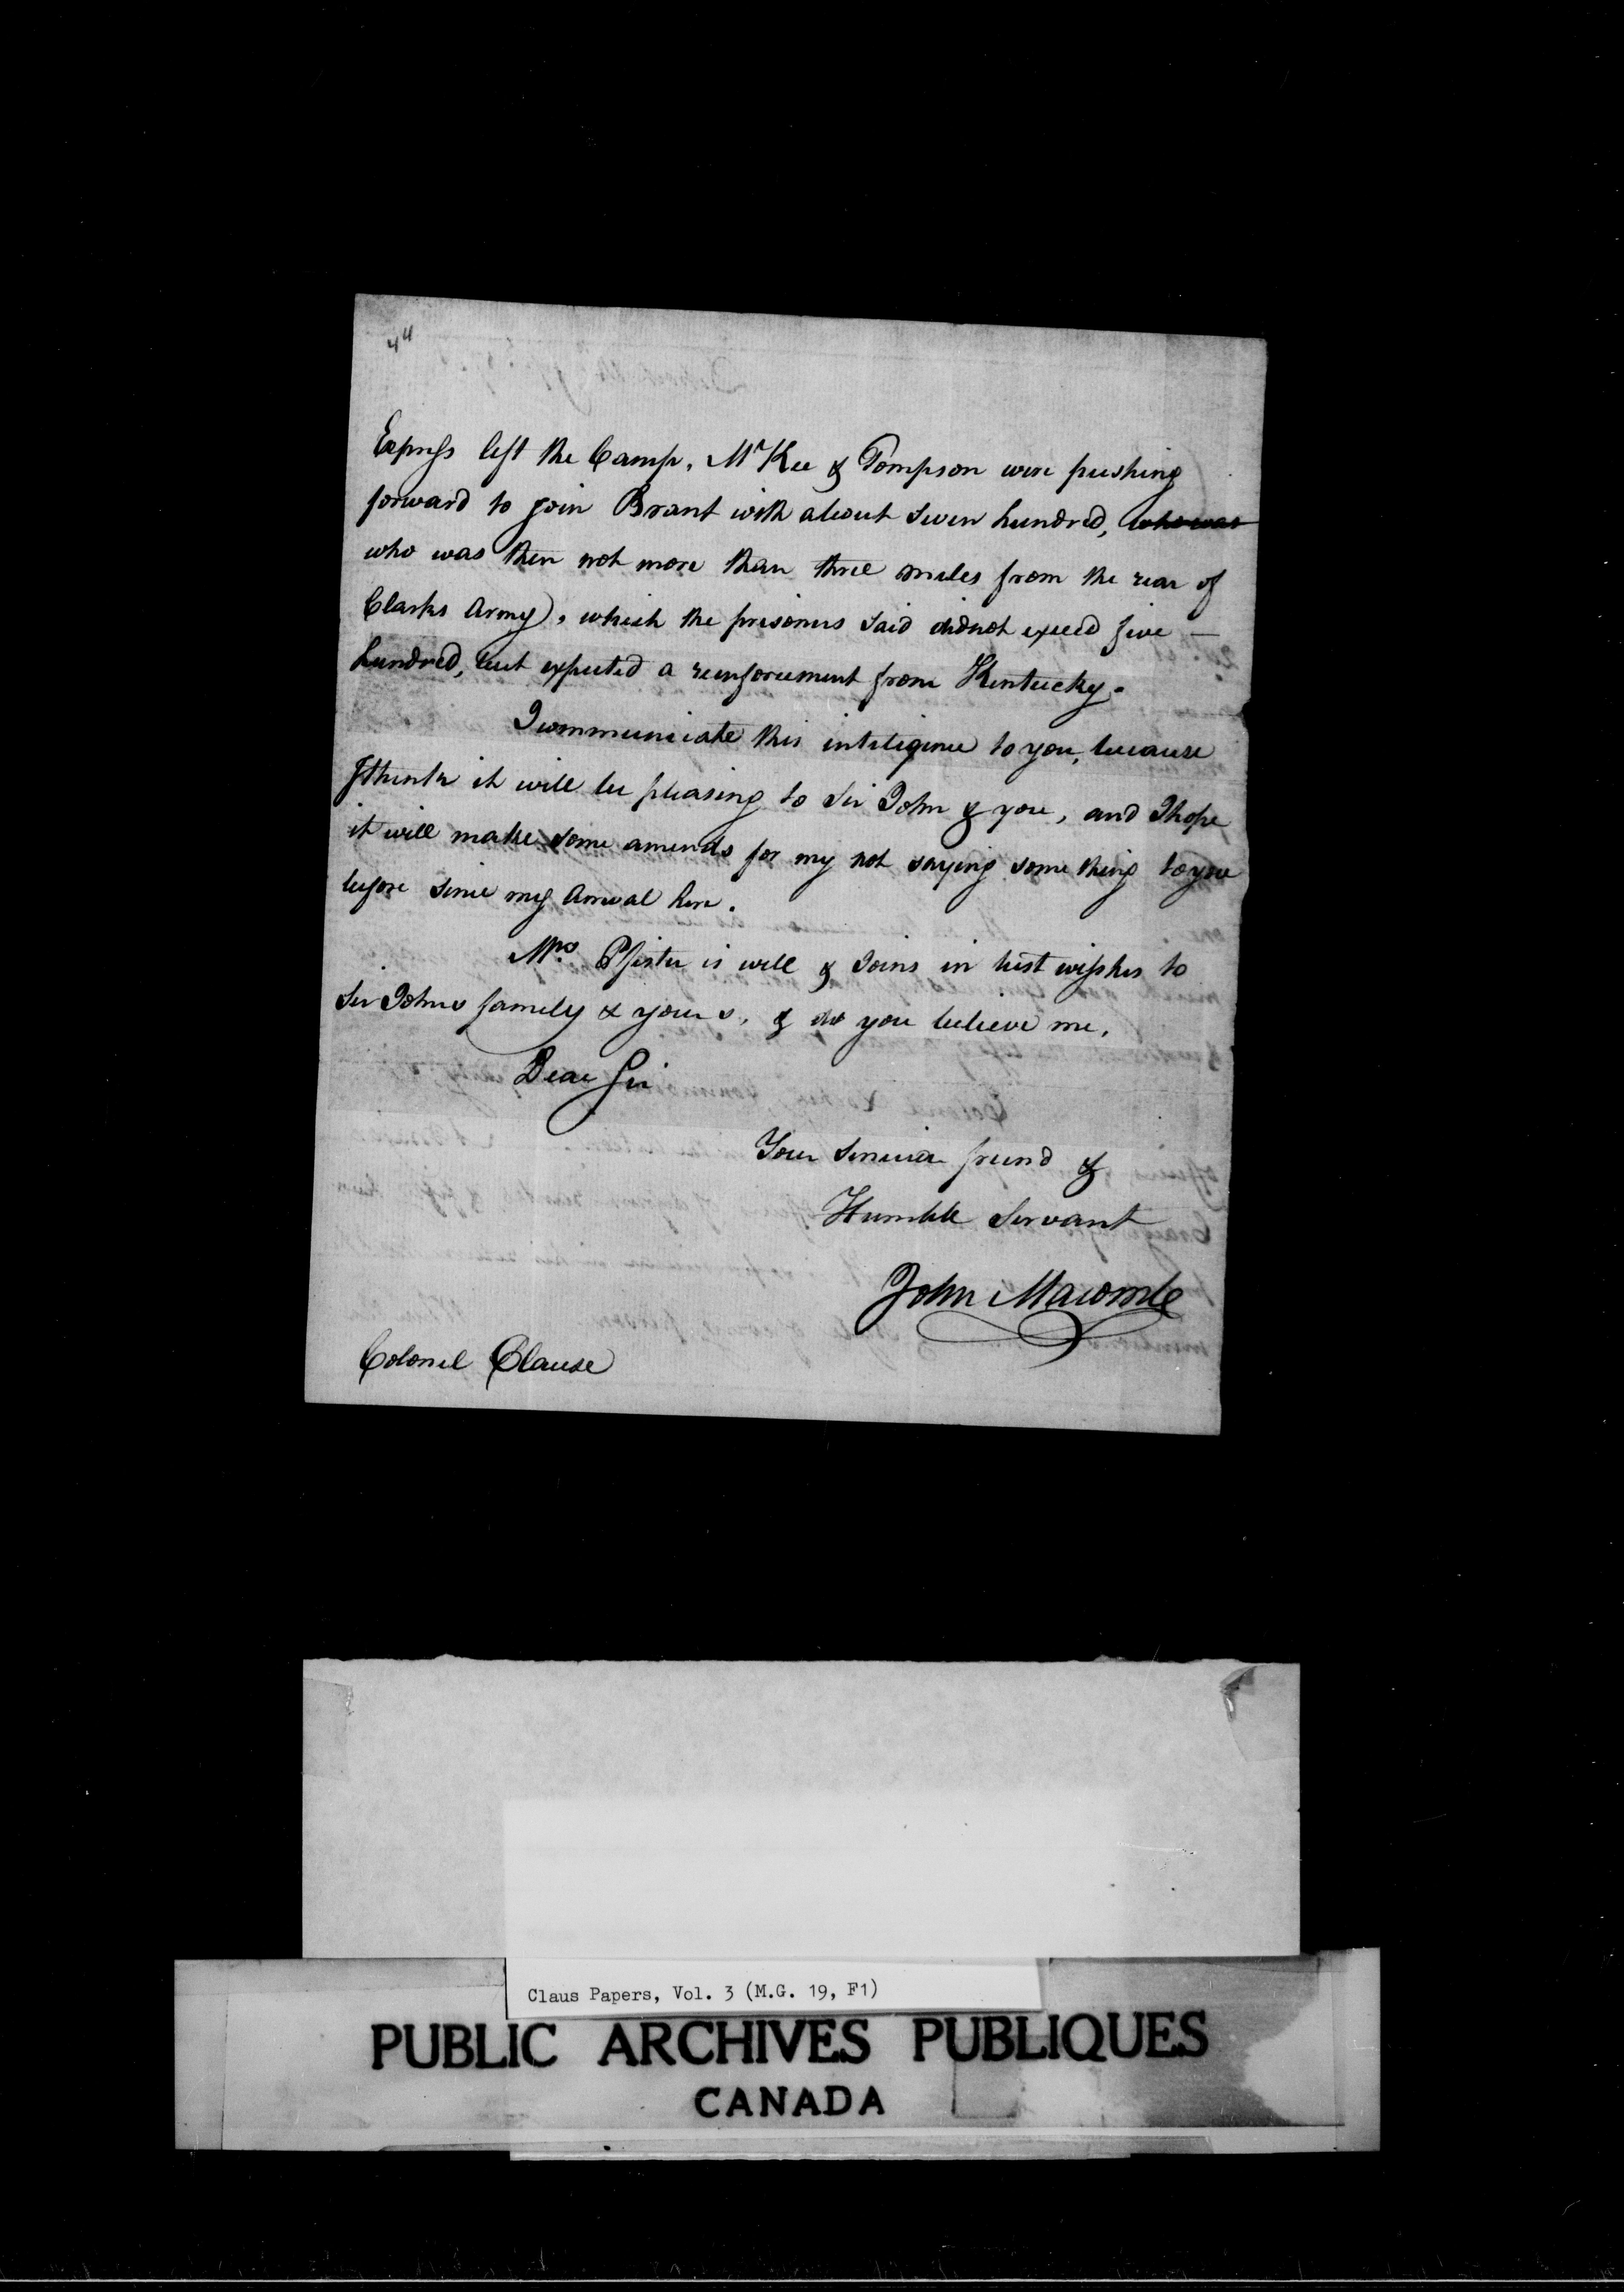 44
Express left the Camp. McKee & Tompson were pushing
forward to join Brant with about seven hundred, who was
who was then not more than three miles from the rear of
Clarks Army), which the prisoners said did not exceed five —
hundred, but expected a reinforcement from Kentucky.
I communicate this inteligence to you, because
I think it will be pleasing to Sir John & you, and I hope
it will make some amends for my not saying some thing to you
before since my Arrival here.
Mrs Pfister is well & Joins in best wishes to
Sir Johns family & yours, & do you believe me,
Dear Sir
Your sincere friend &
Humble Servant
John Macomb
Colonel Clause
Claus Papers, Vol. 3 (M.G. 19, F1)
PUBLIC ARCHIVES PUBLIQUES
CANADA